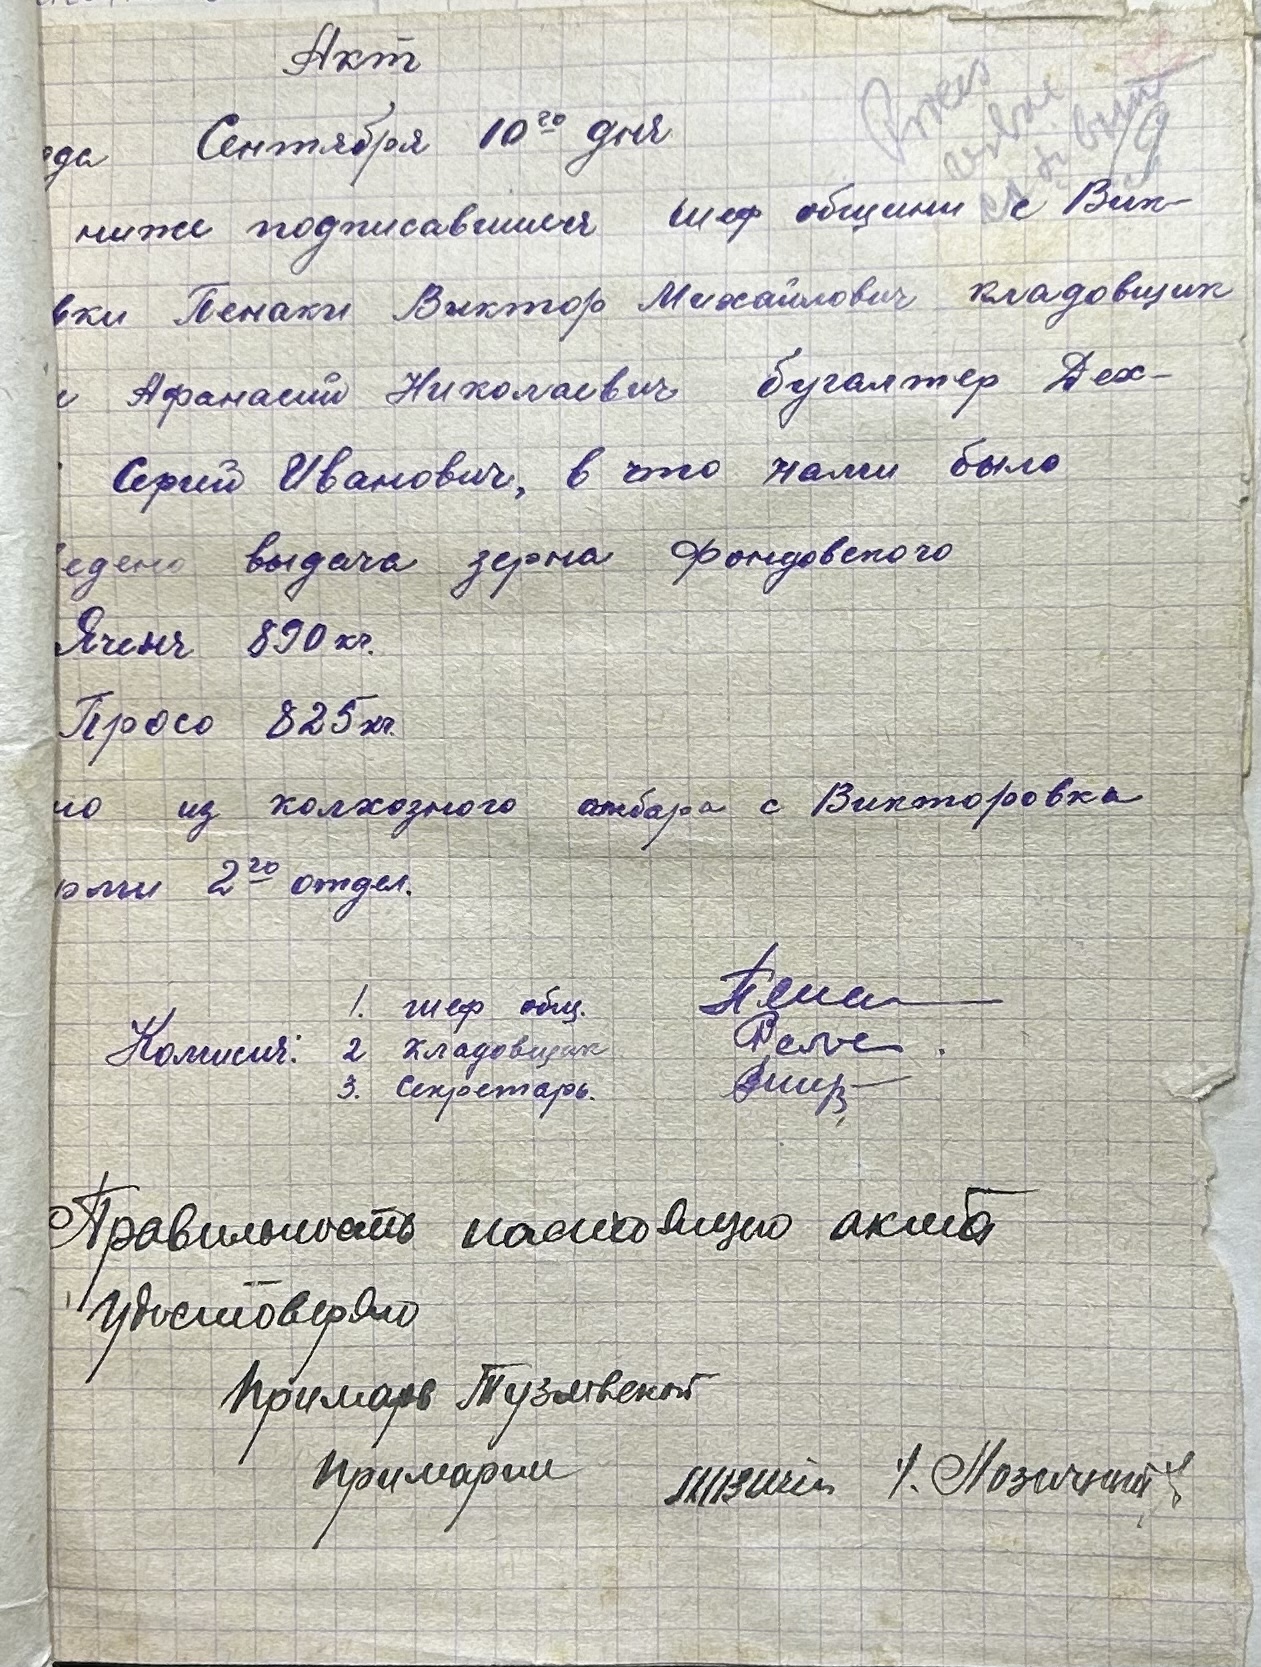 Акт
ода Сентября 10го дня
ниже подписавшиеся шеф общини с Вик-
вки Пенаки Виктор Михайлович кладовщик
Афанасий Николаевич бугалтер Дех-
Сергий Иванович, в что нами было
ведено выдача зерна фондовского
Ячень 890 кг.
Просо 825 кг.
но из колхозного амбара с Викторовка
рми 2го отдел.
1. шеф общ. Пена
Комисия: 2 кладовщик
3. Секретарь.
Правильность настоящего акта
удостоверяю
Примарь Тузлвской
примарии